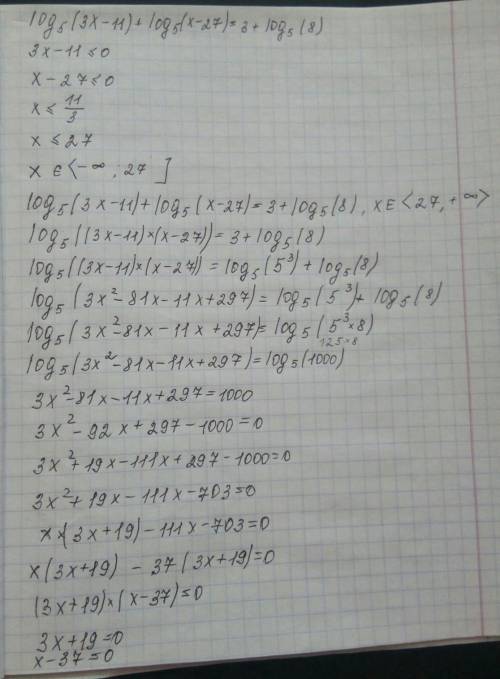 log₅(3x-11)+log₅(x-27)=3+log₅(8)
3x-11≤0
x-27≤0
x≤11/3
x≤27
x∈<-∞;27]
log₅(3x-11)+log₅(x-27)=3+log₅(8), x∈<27,+∞>
log₅((3x-11)×(x-27))=3+log₅(8)
log₅((3x-11)×(x-27))=log₅(5³)+log₅(8)
log₅(3x²-81x-11x+297)=log₅(5³)+log₅(8)
log₅(3x²-81x-11x+297)=log₅(5³×8)
125×8
log₅(3x²-81x-11x+297)=log₅(1000)
3x²-81x-11x+297=1000
3x²-92x+297-1000=0
3x²+19x-111x+297-1000=0
3x²+19x-111x-703=0
x×(3x+19)-111x-703=0
x(3x+19)-37(3x+19)=0
(3x+19)×(x-37)=0
3x+19=0
x-37=0